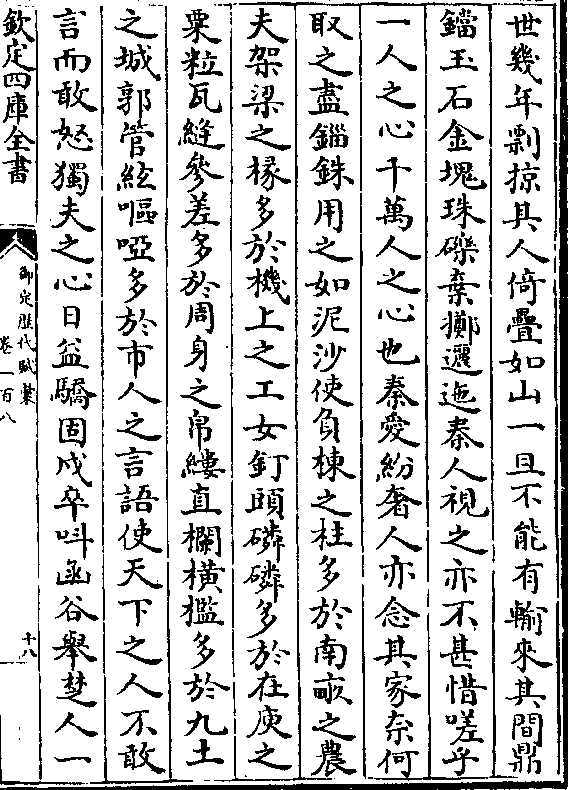 世幾年剽掠其人倚疊如山一旦不能有輸來其間鼎
鐺玉石金塊珠礫棄擲邐迤秦人視之亦不甚惜嗟乎
一人之心千萬人之心也秦愛紛奢人亦念其家奈何
取之盡錙銖用之如泥沙使負棟之柱多於南畝之農
夫架梁之椽多於機上之工女釘頭磷磷多於在庾之
粟粒瓦縫參差多於周身之帛縷直欄橫檻多於九土
之城郭管絃嘔啞多於市人之言語使天下之人不敢
言而敢怒獨夫之心日益驕固戍卒呌函谷舉楚人一
欽定四庫全書
御定歷代賦彙
卷一百八
十八